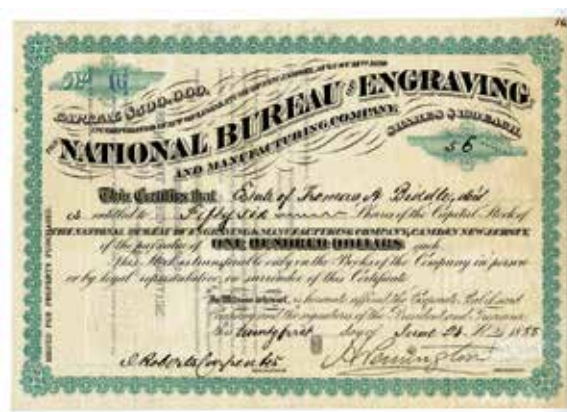 CAPITAL $500,000.
THE NATIONAL BUREAU OF ENGRAVING
AND MANUFACTURING COMPANY
SHARES $100 EACH.
56
This Certifies that Estate of A Biddle, dec'd
is entitled to Fifty six Shares of the Capital Stock of
THE NATIONAL BUREAU OF ENGRAVING & MANUFACTURING COMPANY, CAMDEN NEW JERSEY,
of the par value of ONE HUNDRED DOLLARS each.
This Stock is transferable only on the Books of the Company in person
or by legal representative, on surrender of this Certificate.
In Witness whereof, is hereunto affixed the Corporate Seal of said
Company and the signatures of the President and Treasurer
this day of June
ISSUED FOR PROPERTY PURCHASED.